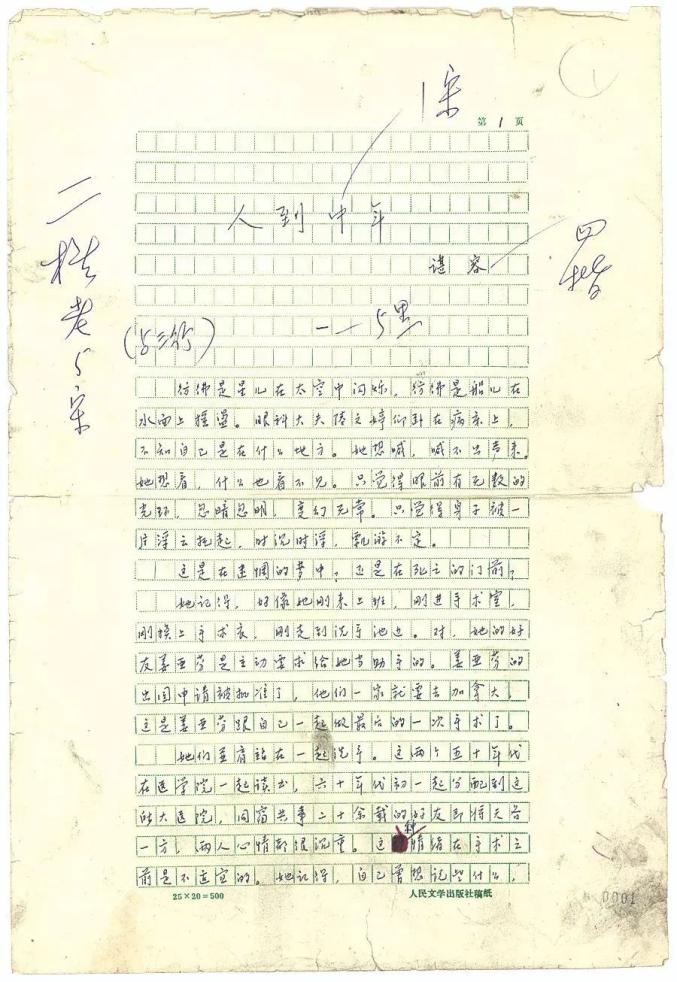 1宋
第1页
人到中年
谌容
四楷
二楷老5宋
(占三行)
一——5黑
彷彿是星儿在太空中闪烁，彷彿是船儿在
水面上摇盪。眼科大夫陆文婷仰卧在病床上，
不知自己是在什么地方。她想喊，喊不出声来。
她想看，什么也看不见。只觉得眼前有无数的
光环，忽暗忽明，变幻无常。只觉得身子被一
片浮云托起，时沉时浮，飘游不定。
这是在迷惘的梦中？还是在死亡的门前？
她记得，好像她刚来上班，刚进手术室，
刚换上手术衣，刚走到洗手池边。对，她的好
友姜亚芬是主动要求给她当助手的。姜亚芬的
出国申请被批准了，他们一家就要去加拿大，
这是姜亚芬跟自己一起做最后的一次手术了。
她们并肩站在一起洗手。这两个五十年代
在医学院一起读书，六十年代初一起分配到这
所大医院，同窗共事二十余载的好友即将天各
一方，两人心情都很沉重。这种情绪在手术之
前是不适宜的。她记得，自己曾想说些什么，
25×20=500
人民文学出版社稿纸
0001